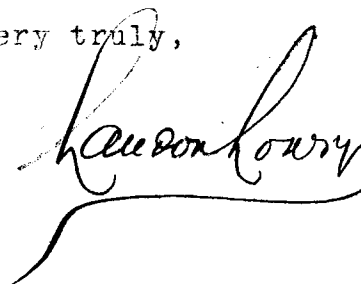 ery truly,
Landon Lowry